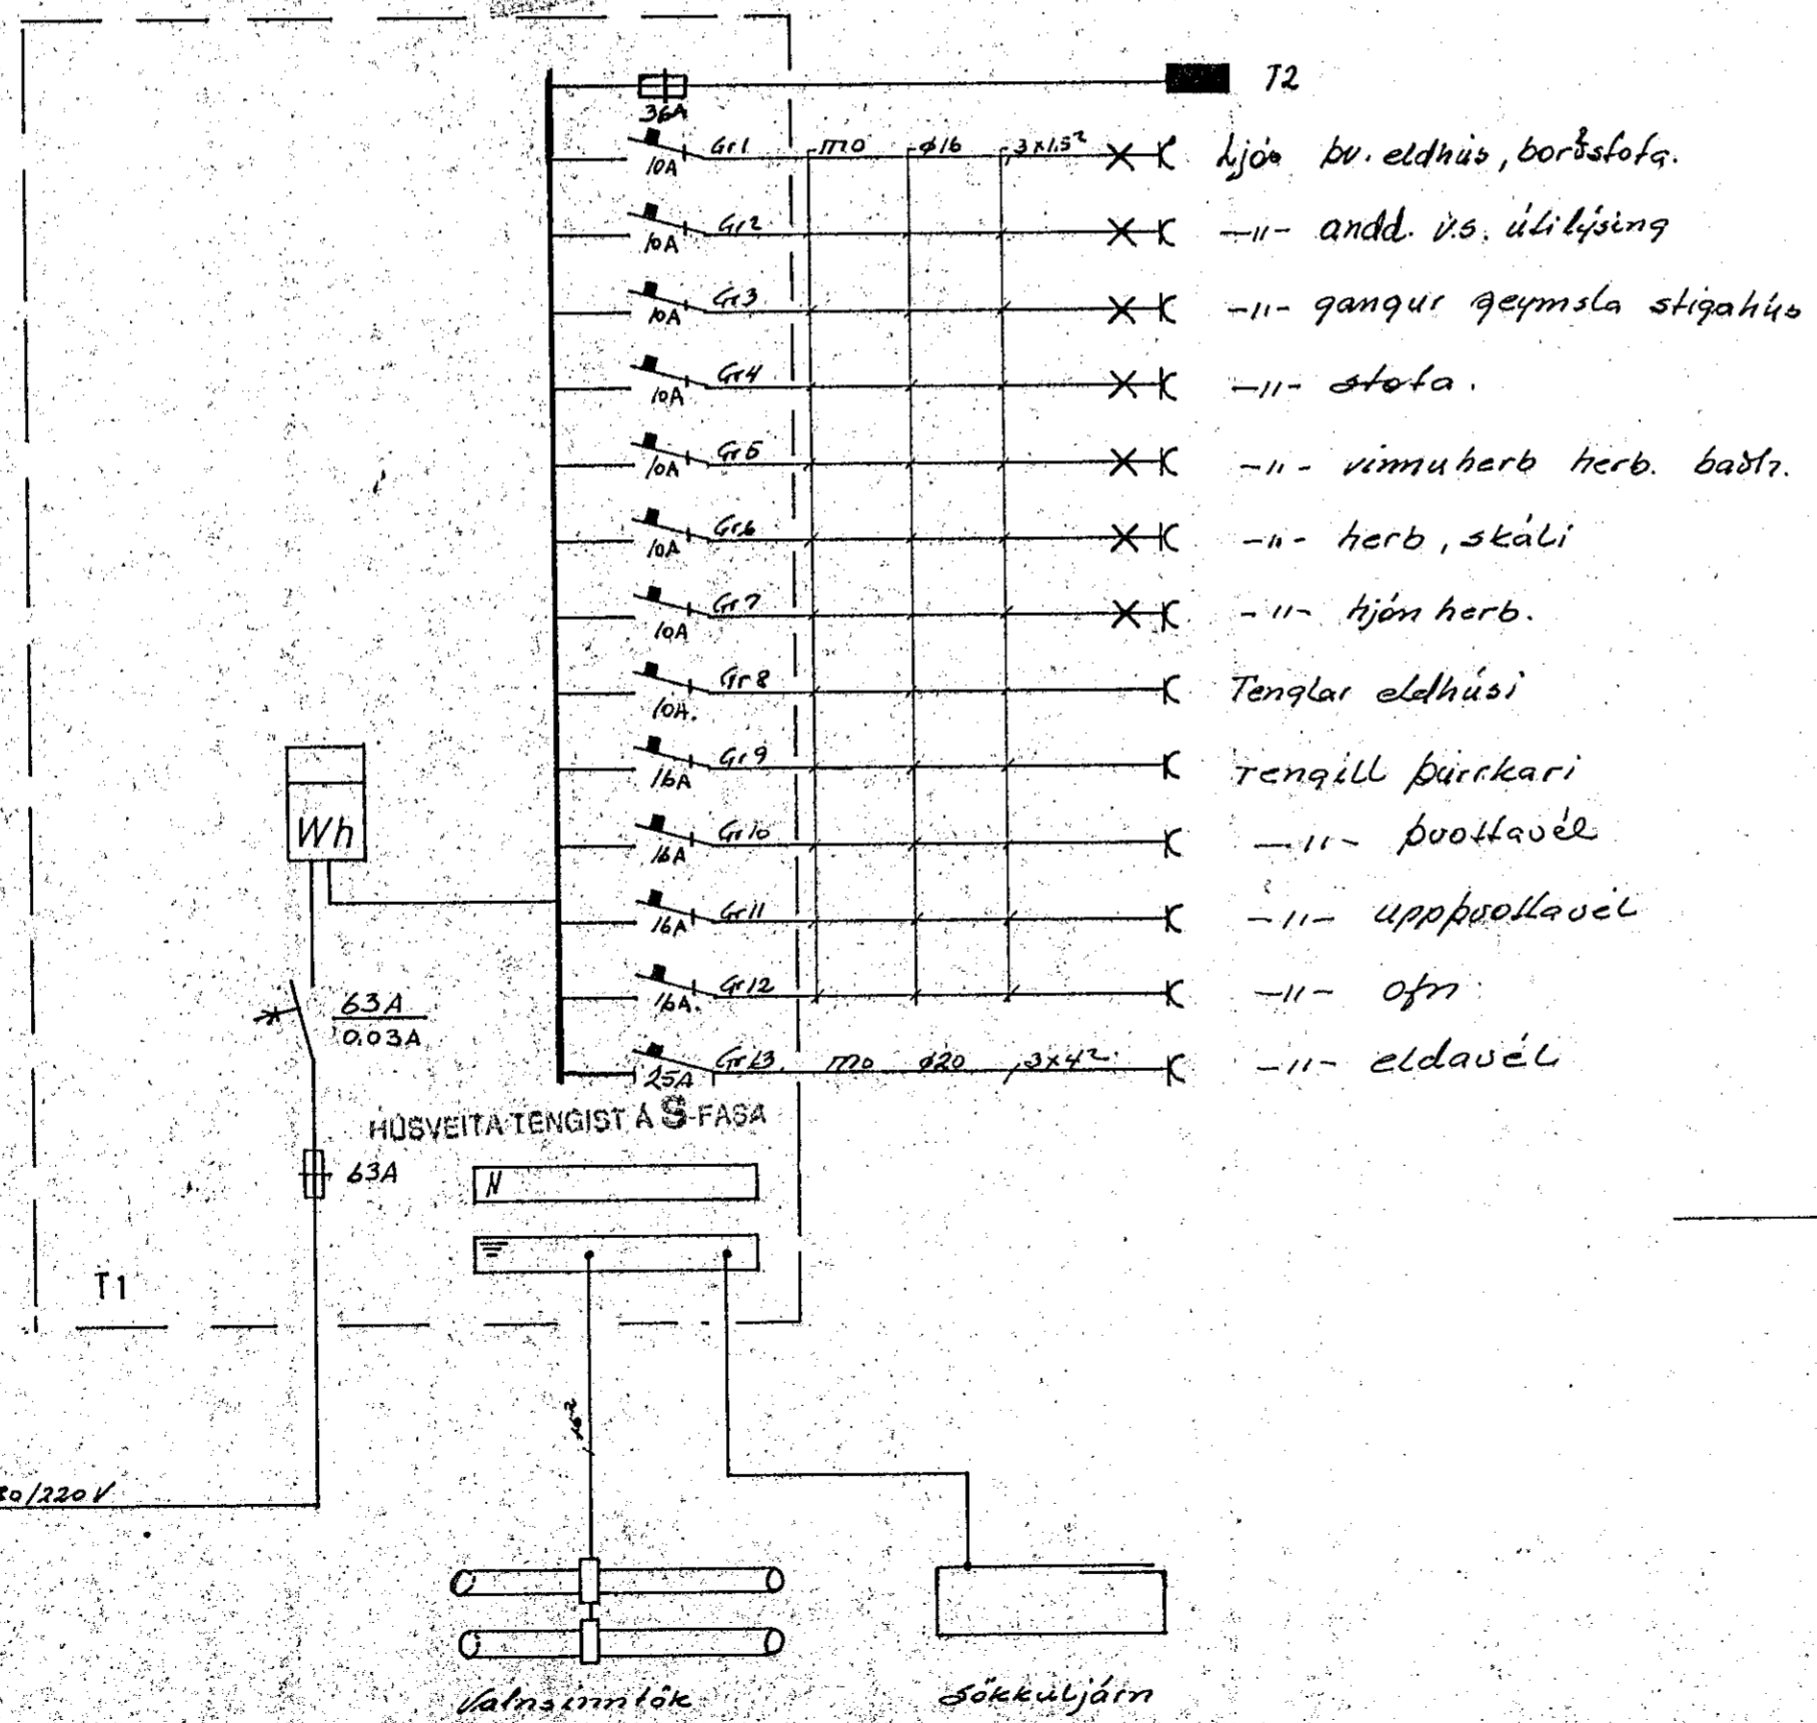 T2
36A
Gr1 m0 ø16 3x1.5² Ljós þv. eldhús, borðstofa.
10A
Gr2 -"- andd. v.s. útilýsing
10A
Gr3 -"- gangur geymsla stigahús
10A
Gr4 -"- stofa.
10A
Gr5 -"- vinnuherb herb. baðh.
10A
Gr6 -"- herb, skáli
10A
Gr7 -"- hjónherb.
10A
Gr8 Tenglar eldhúsi
10A.
Gr9 Tengill þurrkari
16A
Wh
Gr10 -"- þvottavél
16A
Gr11 -"- uppþvottavél
16A
Gr12 -"- ofn
16A.
63A
0.03A
Gr13. m0 ø20 3x4² -"- eldavél
25A
HÚSVEITA TENGIST Á S-FASA
63A
N
T1
16²
/220V
Vatnsinntök
Sökkuljárn